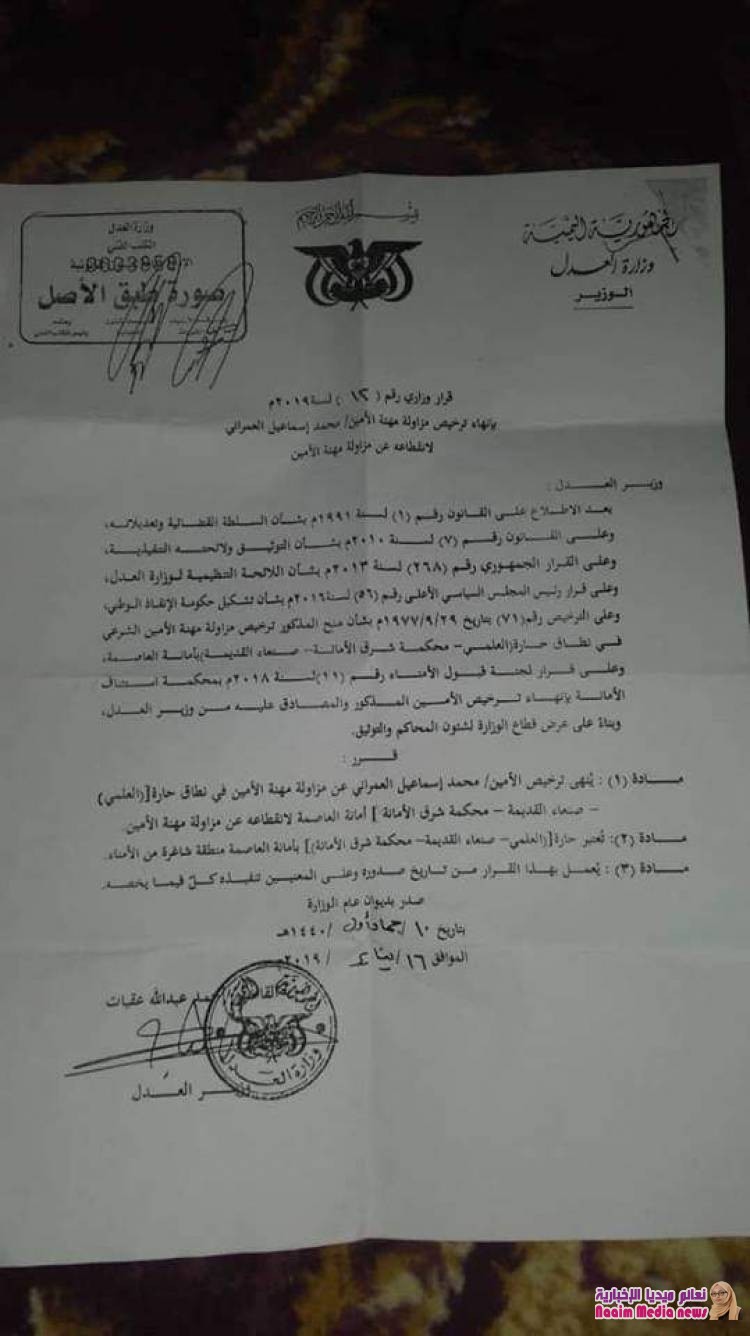 بسم الله الرحمن الرحيم
الجمهورية اليمنية
وزارة العدل
الوزير
وزارة العدل
المكتب الفني
صورة طبق الأصل
قرار وزاري رقم ( ١٢ ) لسنة ٢٠١٩م
بإنهاء ترخيص مزاولة مهنة الأمين/ محمد إسماعيل العمراني
لانقطاعه عن مزاولة مهنة الأمين
وزير العدل :
بعد الاطلاع على القانون رقم (١) لسنة ١٩٩١م بشأن السلطة القضائية وتعديلاته،
وعلى القانون رقم (٧) لسنة ٢٠١٠م بشأن التوثيق ولائحته التنفيذية،
وعلى القرار الجمهوري رقم (٢٦٨) لسنة ٢٠١٣م بشأن اللائحة التنظيمية لوزارة العدل،
وعلى قرار رئيس المجلس السياسي الأعلى رقم (٥٦) لسنة ٢٠١٦م بشأن تشكيل حكومة الإنقاذ الوطني،
وعلى الترخيص رقم (٧١) بتاريخ ١٩٧٧/٩/٢٩م بشأن منح المذكور ترخيص مزاولة مهنة الأمين الشرعي
في نطاق حارة(العلمي– محكمة شرق الأمانة– صنعاء القديمة)بأمانة العاصمة،
وعلى قرار لجنة قبول الأمناء رقم (١١)لسنة ٢٠١٨م بمحكمة استئناف
الأمانة بإنهاء ترخيص الأمين المذكور والمصادق عليه من وزير العدل،
وبناءً على عرض قطاع الوزارة لشئون المحاكم والتوثيق.
قرر :
مادة (١) : يُنهى ترخيص الأمين/ محمد إسماعيل العمراني عن مزاولة مهنة الأمين في نطاق حارة[(العلمي)
– صنعاء القديمة – محكمة شرق الأمانة ] أمانة العاصمة لانقطاعه عن مزاولة مهنة الأمين.
مادة (٢): تُعتبر حارة[(العلمي– صنعاء القديمة– محكمة شرق الأمانة)] بأمانة العاصمة منطقة شاغرة من الأمناء.
مادة (٣) : يُعمل بهذا القرار من تاريخ صدوره وعلى المعنيين تنفيذه كلٌ فيما يخصه.
صدر بديوان عام الوزارة
بتاريخ ١٠ / جماد أول / ١٤٤٠هـ
الموافق ١٦ / يناير / ٢٠١٩م
عبدالله عقبات
وزير العدل
وزارة العدل
نعائم ميديا الإخبارية
Naaim Media news